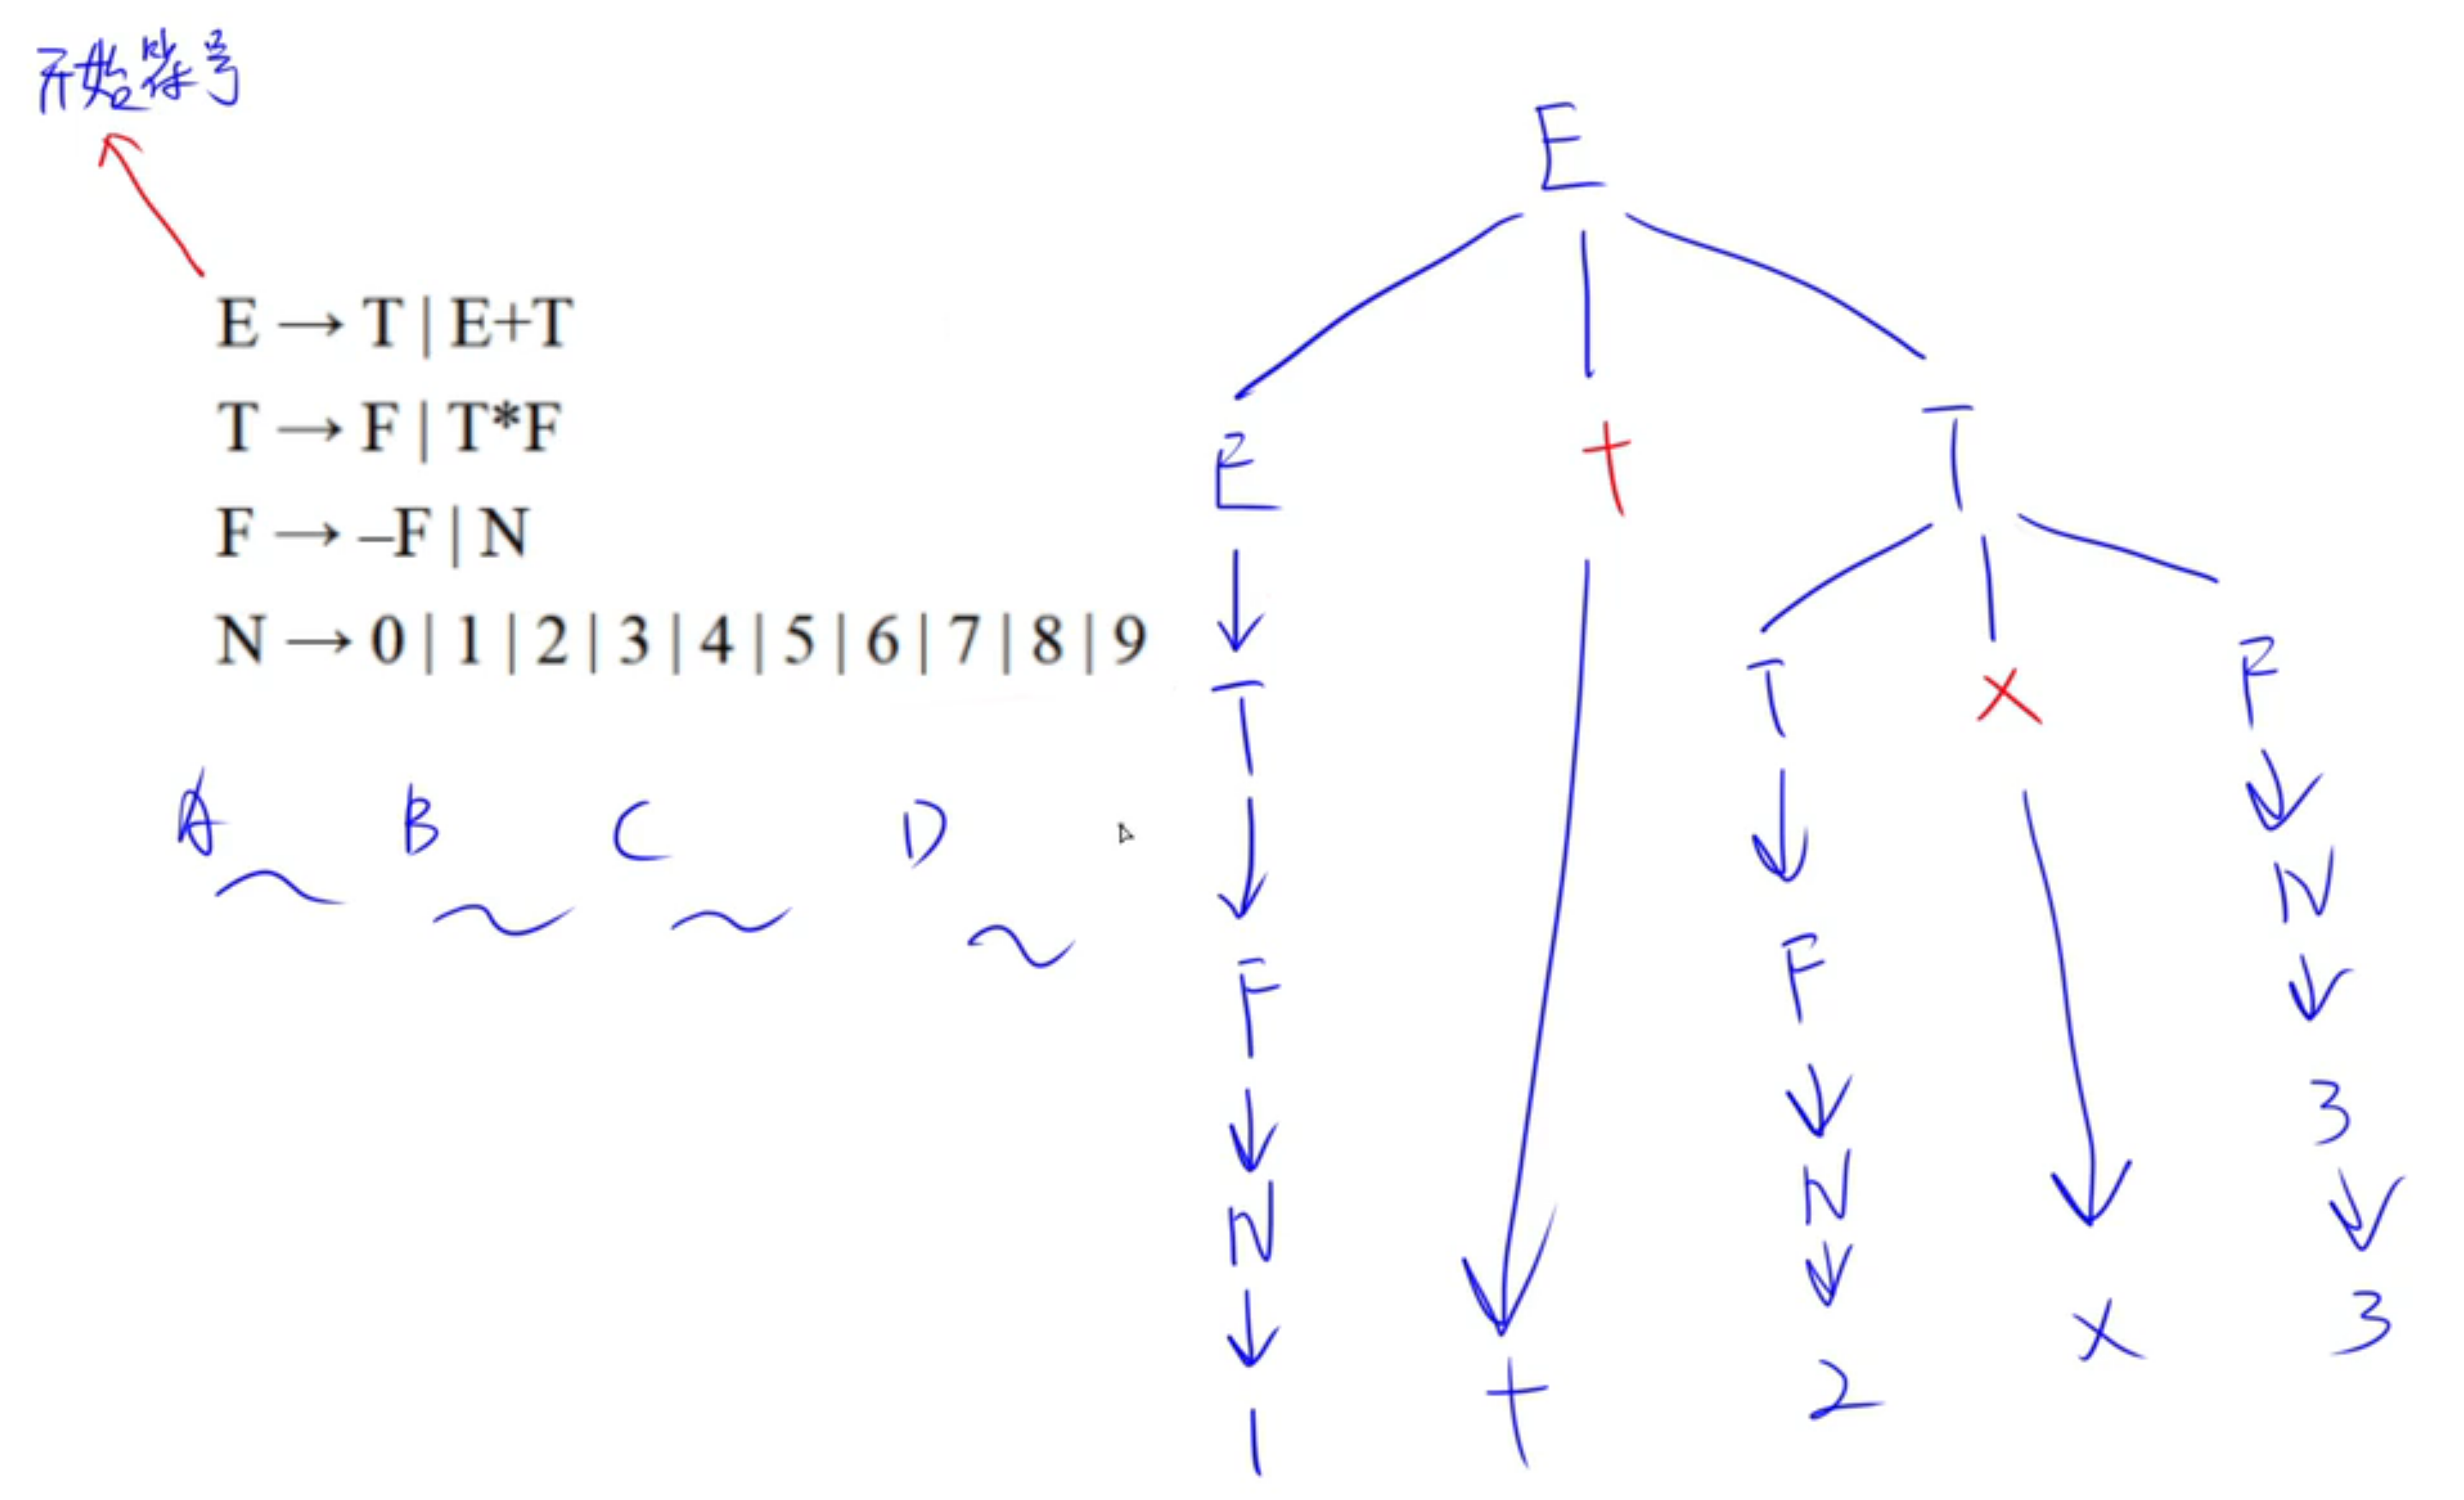 开始符号
E → T | E+T
T → F | T*F
F → –F | N
N → 0 | 1 | 2 | 3 | 4 | 5 | 6 | 7 | 8 | 9
A B C D
E
E + T
T T × F
F F N
N N 3
1 + 2 × 3